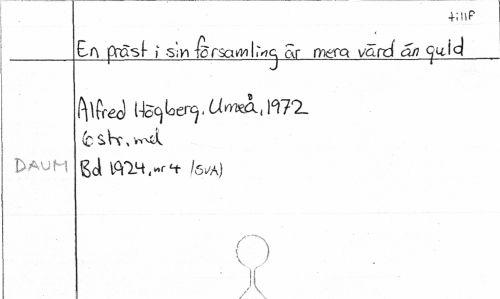 tillf
En präst i sin församling är mera värd än guld
Alfred Högberg, Umeå, 1972
6 str, mel
DAUM Bd 1924, nr 4 (SVA)